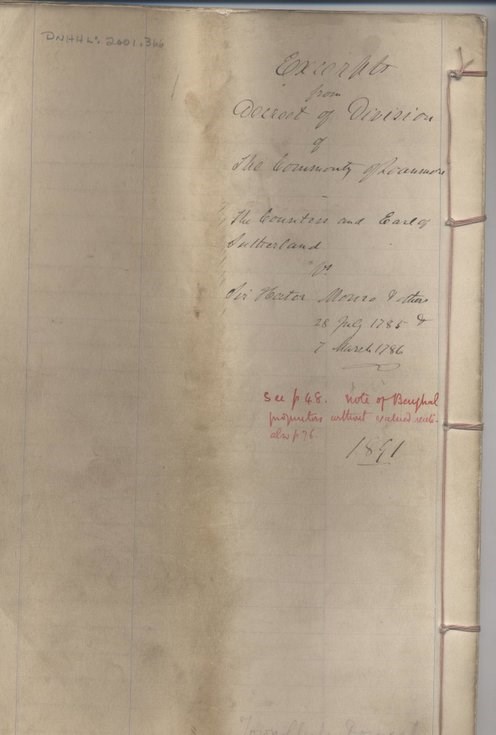 DNHHL: 2001.366
Excerpts
from
Decreet of Division
of
The Commonty of Loanmore
The Countess and Earl of
Sutherland
Vs
Sir Hector Monro & others
28 July 1785 &
7 March 1786
See p 48. note of Burghal
proprietors without valued rents.
also p 76
1891